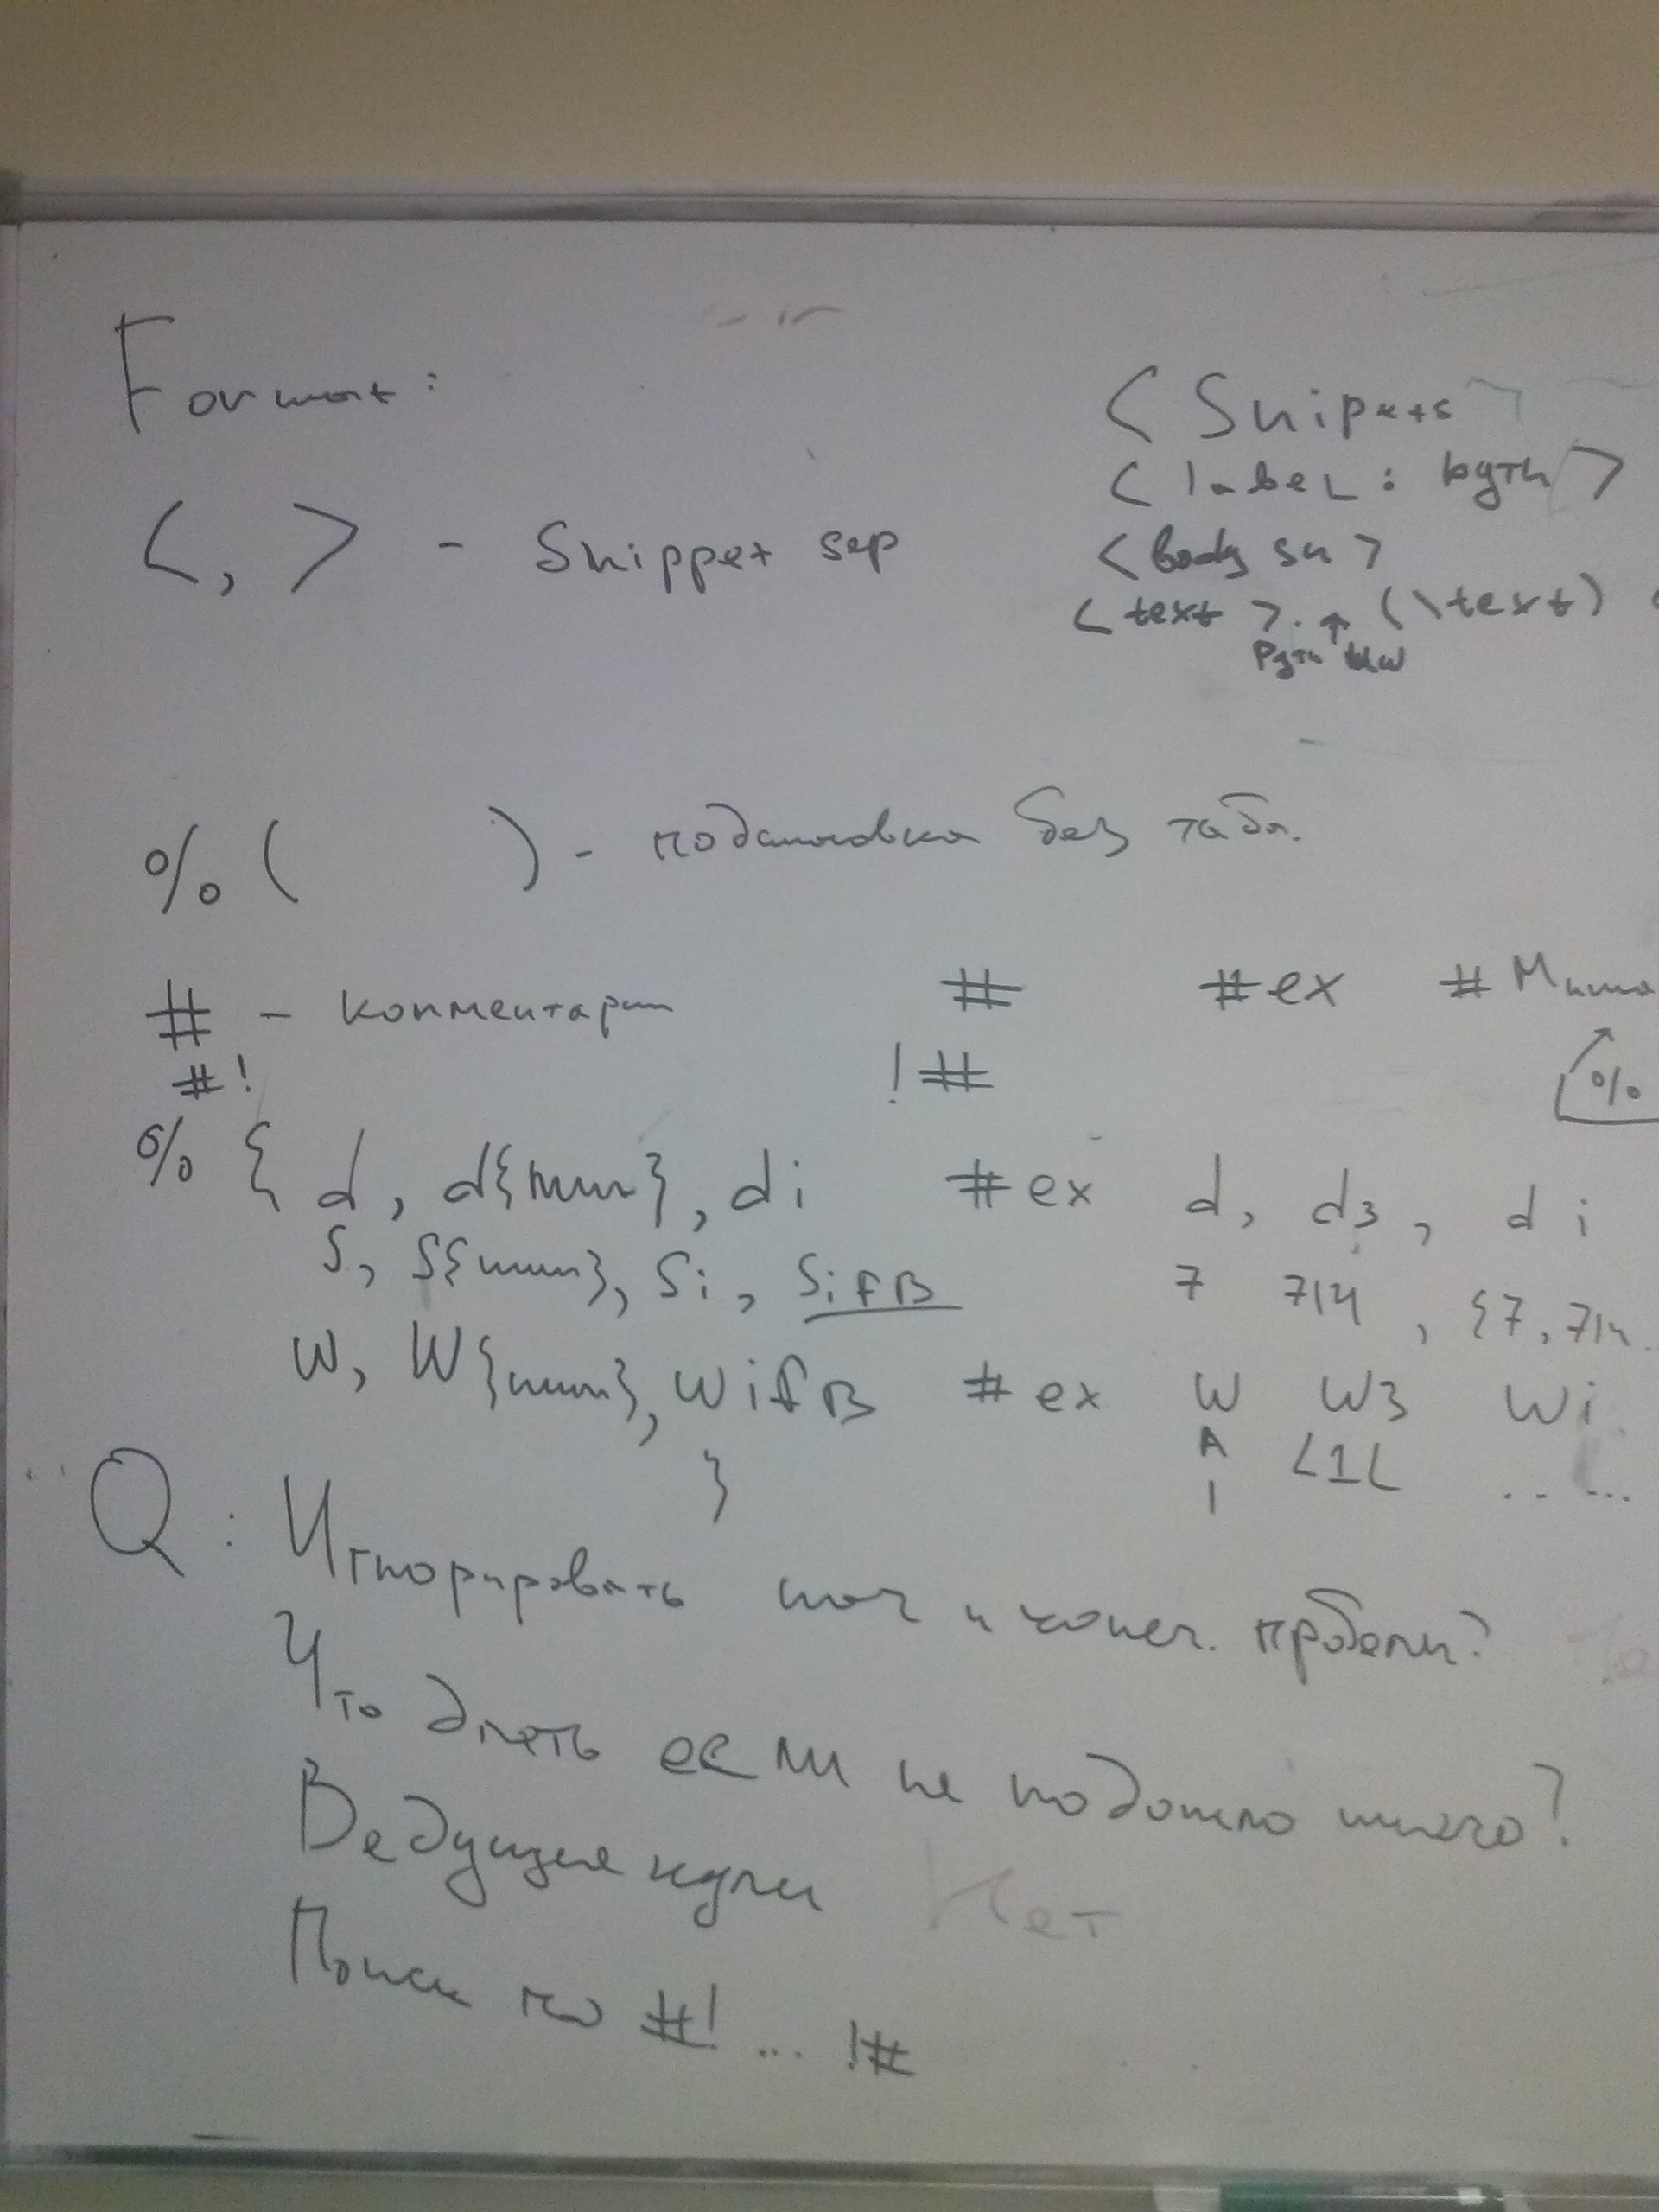 Format:
<Snipets>
<label: пути>
<, > - Snippet sep
<body sn>
<text >. ↑ (\text)
%( ) - подстановка без табл.
# - комментарии # #ex # Миша
#! !# %
% { d, d{num}, di #ex d, d3, di
S, S{num}, Si, SifB 7 714, {7, 714
w, W{num}, wifB #ex w w3 wi
A L1L .. ...
} 1
Q: Игнорировать нач и конеч. пробелы?
Что делать если не подошло ничего?
Ведущие нули Нет
Поиск по #! ... !#